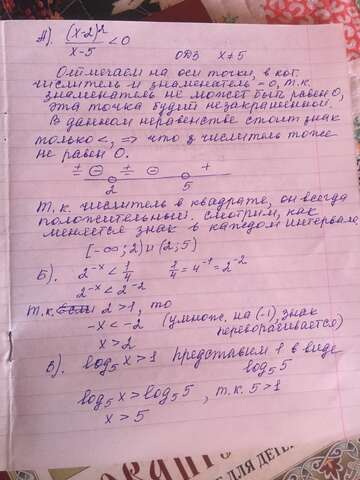 А). (x-2)²/(x-5) < 0
ОДЗ x ≠ 5
Отмечаем на оси точки, в кот.
числитель и знаменатель = 0, т.к.
знаменатель не может быть равен 0,
эта точка будет незакрашенной.
В данном неравенстве стоит знак
только <, ⇒ что и числитель тоже
не равен 0.
± ⊖ ± ⊖ +
2 5
т.к. числитель в квадрате, он всегда
положительный. смотрим, как
меняется знак в каждом интервале
[-∞; 2) и (2; 5)
Б). 2^{-x} < 1/4 1/4 = 4^{-1} = 2^{-2}
2^{-x} < 2^{-2}
т.к. 2 > 1, то
-x < -2 (умнож. на (-1), знак
переворачивается)
x > 2
В). log₅x > 1 представим 1 в виде
log₅5
log₅x > log₅5, т.к. 5 > 1
x > 5
ДЛЯ ДЕТЕ